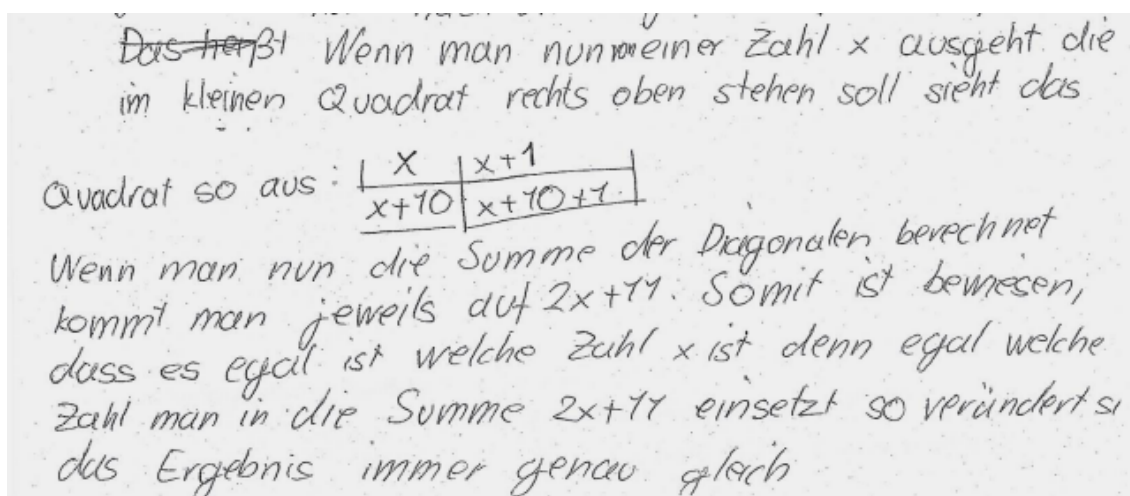 Das heißt Wenn man nun von einer Zahl x ausgeht die
im kleinen Quadrat rechts oben stehen soll sieht das
x | x+1
Quadrat so aus: x+10 | x+10+1
Wenn man nun die Summe der Diagonalen berechnet
kommt man jeweils auf 2x+11. Somit ist bewiesen,
dass es egal ist welche Zahl x ist denn egal welche
Zahl man in die Summe 2x+11 einsetzt so verändert si
das Ergebnis immer genau gleich